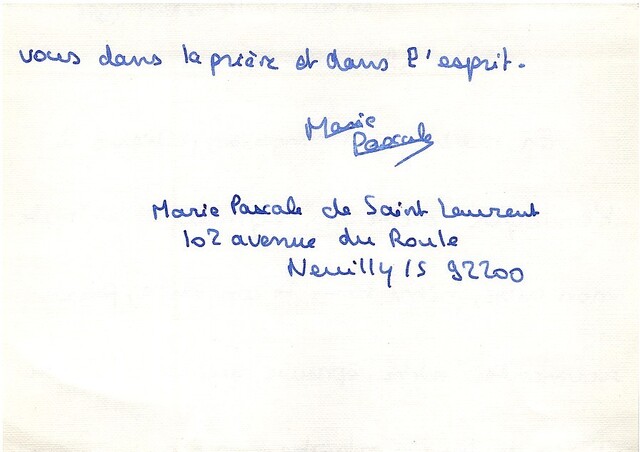 vous dans la prière et dans l'esprit.
Marie
Pascale
Marie Pascale de Saint Laurent
102 avenue du Roule
Neuilly /S 92200